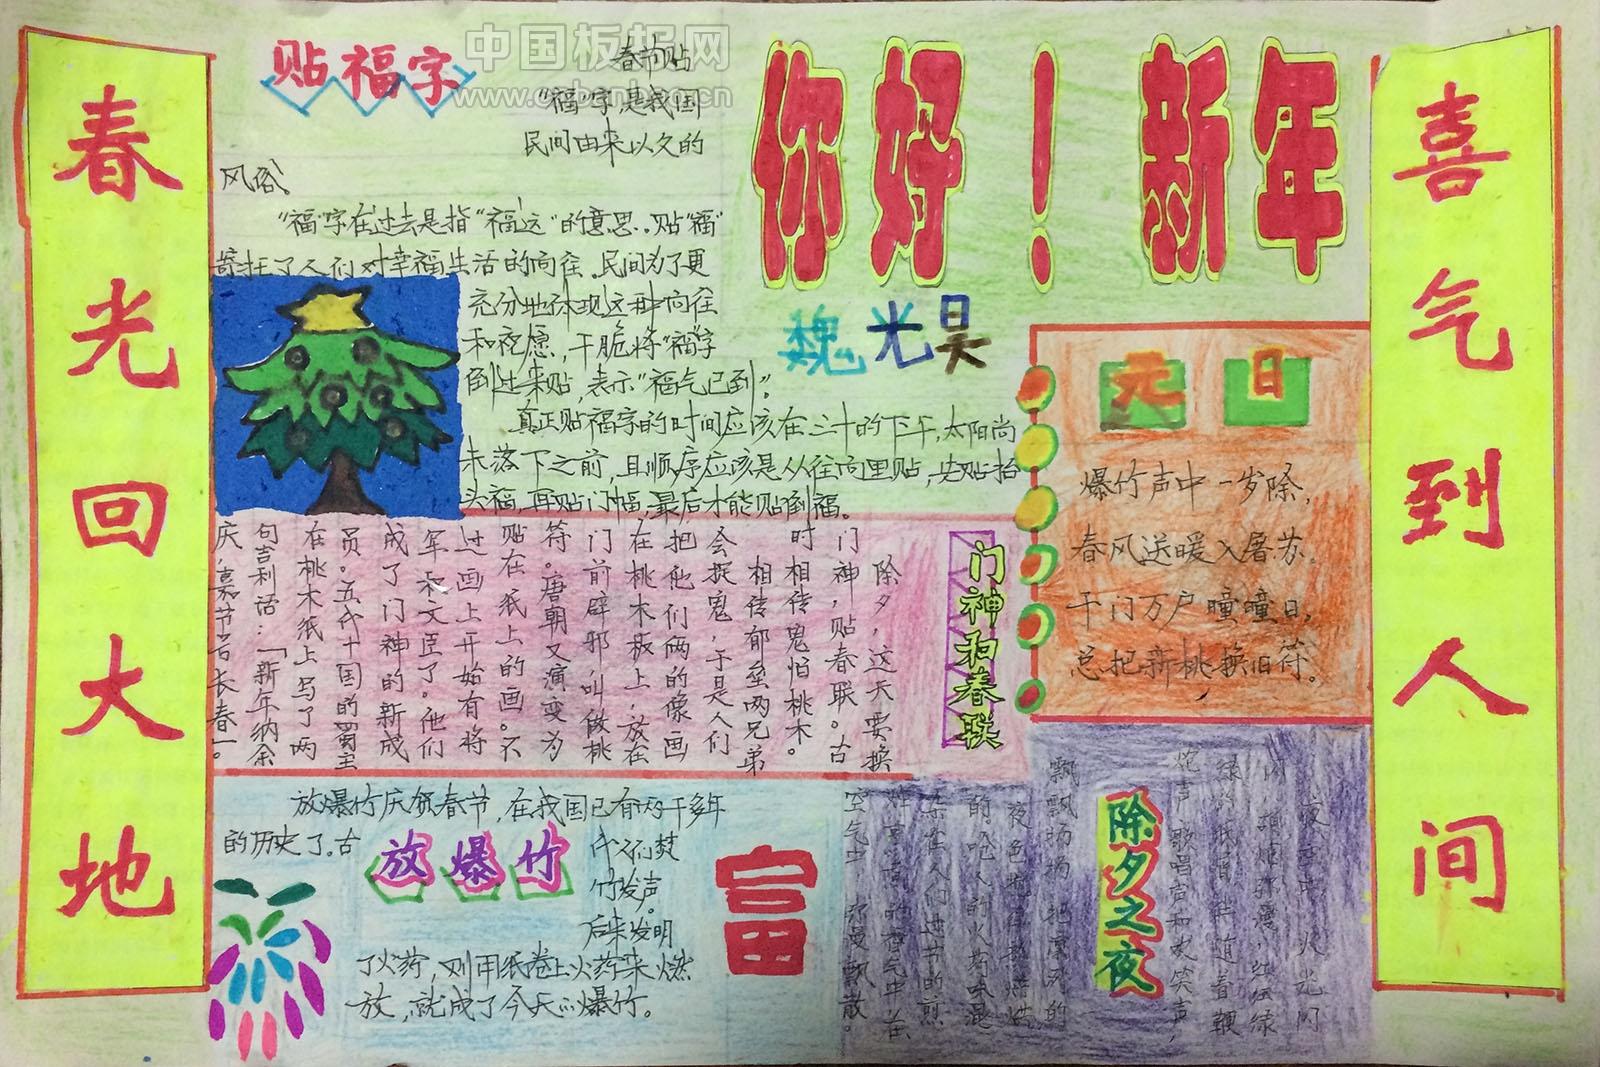 春光回大地
喜气到人间
中国板报网
贴福字
春节贴
"福"字是我国
民间由来以久的
风俗。
"福"字在过去是指"福运"的意思。贴"福"
寄托了人们对幸福生活的向往。民间为了更
充分地体现这种向往
和祝愿,干脆将"福"字
倒过来贴,表示"福气已到"。
真正贴福字的时间应该在三十的下午,太阳尚
未落下之前,且顺序应该是从往向里贴,先贴抬
头福,再贴门福,最后才能贴倒福。
你好!新年
魏光昊
元日
爆竹声中一岁除,
春风送暖入屠苏。
千门万户曈曈日,
总把新桃换旧符。
门神和春联
除夕,这天要换
门神,贴春联。古
时相传鬼怕桃木。
相传郁垒两兄弟
会捉鬼,于是人们
把他们俩的像画
在桃木板上,放在
门前辟邪叫做桃
符。唐朝又演变为
贴在纸上的画。不
过画上开始有将
军和文臣了。他们
成了门神的新成
员。五代十国的蜀主
在桃木纸上写了两
句吉利话:「新年纳余
庆,嘉节号长春」。
放爆竹
放爆竹庆贺春节,在我国已有两千多年
的历史了。古
代人们焚
竹发声。
后来发明
了火药,则用纸卷上火药来燃
放,就成了今天的爆竹。
富
除夕之夜
绿的纸屑伴随着鞭
炮声歌唱声和欢笑声,
飘飘扬扬 把凛冽的
夜色
的吃人的火药味混
杂在人们过节的煎
炸烹
空气中 弥漫飘散。